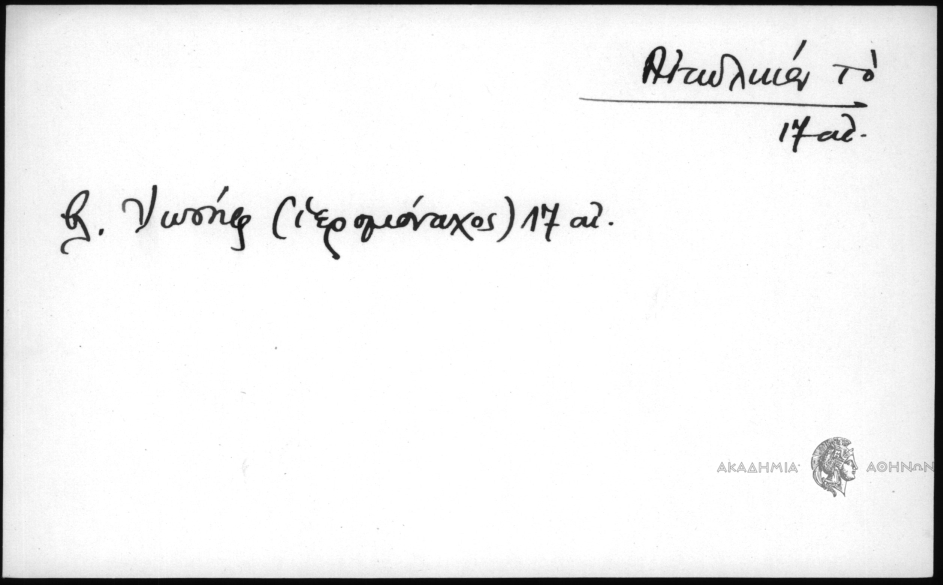 Αἰτωλικόν τὸ
17 αἰ.
βλ. Ἰωσήφ (ἱερομόναχος) 17 αἰ.
ΑΚΑΔΗΜΙΑ ΑΘΗΝΩΝ